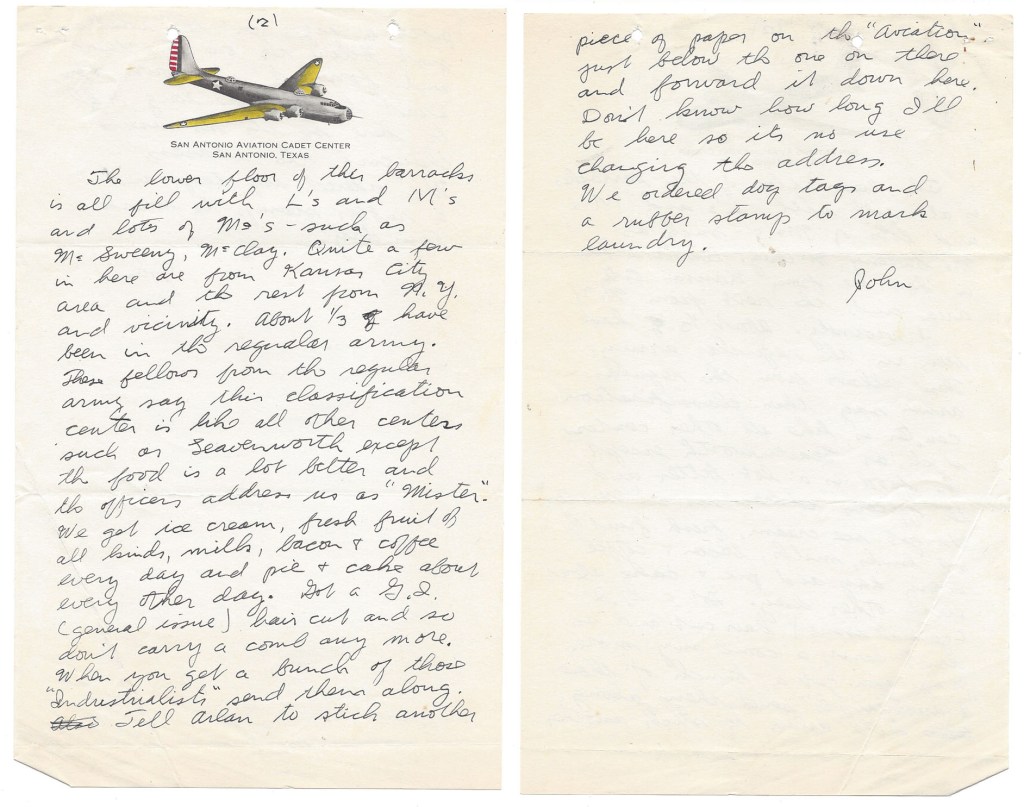 (2)
SAN ANTONIO AVIATION CADET CENTER
SAN ANTONIO, TEXAS
The lower floor of ther barracks
is all fill with L's and M's
and lots of Mc's - such as
Mc Sweeny, McClay. Quite a few
in here are from Kansas City
area and the rest from N.Y.
and vicinity. About 1/3 have
been in the regular army.
These fellows from the regular
army say this classification
center is like all other centers
such as Leavenworth except
the food is a lot better and
the officers address us as "Mister".
We get ice cream, fresh fruit of
all kinds, milk, bacon & coffee
every day and pie & cake about
every other day. Got a G.I.
(general issue) hair cut and so
don't carry a comb any more.
When you get a bunch of those
"Industrialists" send them along.
Also Tell Arlan to stick another
piece of paper on the "Aviation"
just below the one on there
and forward it down here.
Don't know how long I'll
be here so its no use
changing the address.
We ordered dog tags and
a rubber stamp to mark
laundry.
John